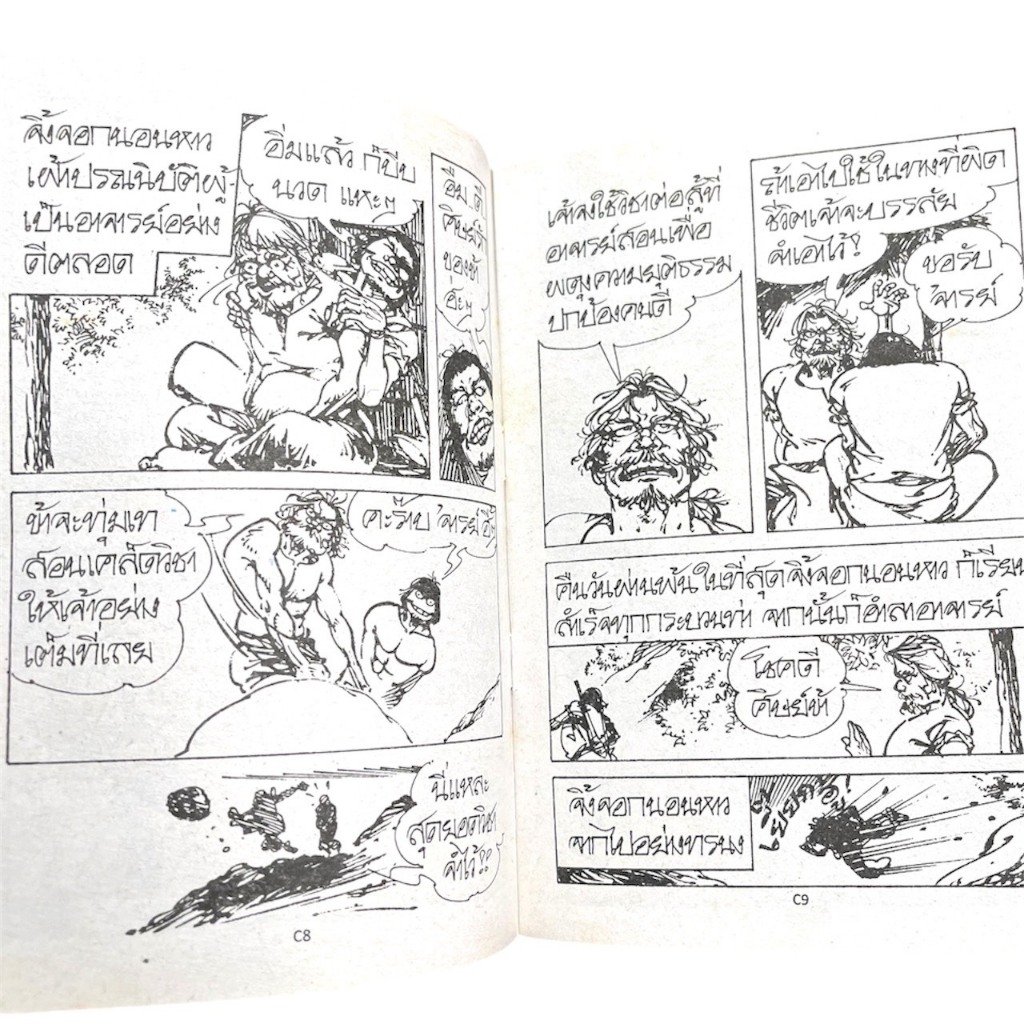 จิ้งจอกนอนหาว
เฝ้าปรณนิบัติผู้
เป็นอาจารย์อย่าง
ดีตลอด
อิ่มแล้ว ก็บีบ
นวด แหะๆ
อืม ดี
ศิษย์รัก
ของข้า
ข้าจะทุ่มเท
สอนเคล็ดวิชา
ให้เจ้าอย่าง
เต็มที่เลย
คะร๊าบ 'จารย์
นี่แหละ
สุดยอดวิชา
จำไว้!!
C8
เจ้าจงใช้วิชาต่อสู้ที่
อาจารย์สอนเพื่อ
ผดุงความยุติธรรม
ปกป้องคนดี
ถ้าเอาไปใช้ในทางที่ผิด
ชีวิตเจ้าจะบรรลัย
จำเอาไว้!
ขอรับ
'จารย์
คืนวันผ่านพ้น ในที่สุดจิ้งจอกนอนหาว ก็เรียน
สำเร็จทุกกระบวนท่า จากนั้นก็อำลาอาจารย์
โชคดี
ศิษย์ข้า
จิ้งจอกนอนหาว
จากไปอย่างทรนง
C9